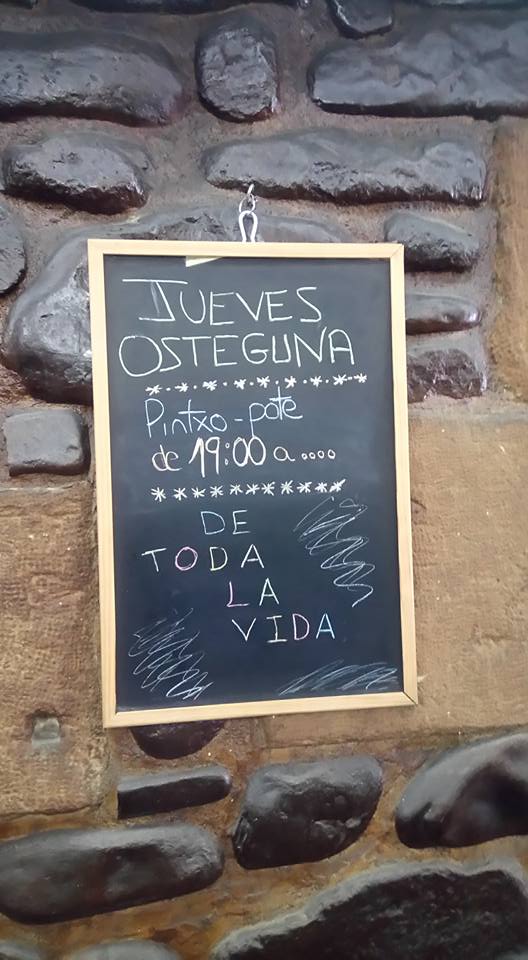 JUEVES
OSTEGUNA
*.*.*.*.*.*.*.*
Pintxo-pote
de 19:00 a ....
*********
DE
TODA
LA
VIDA